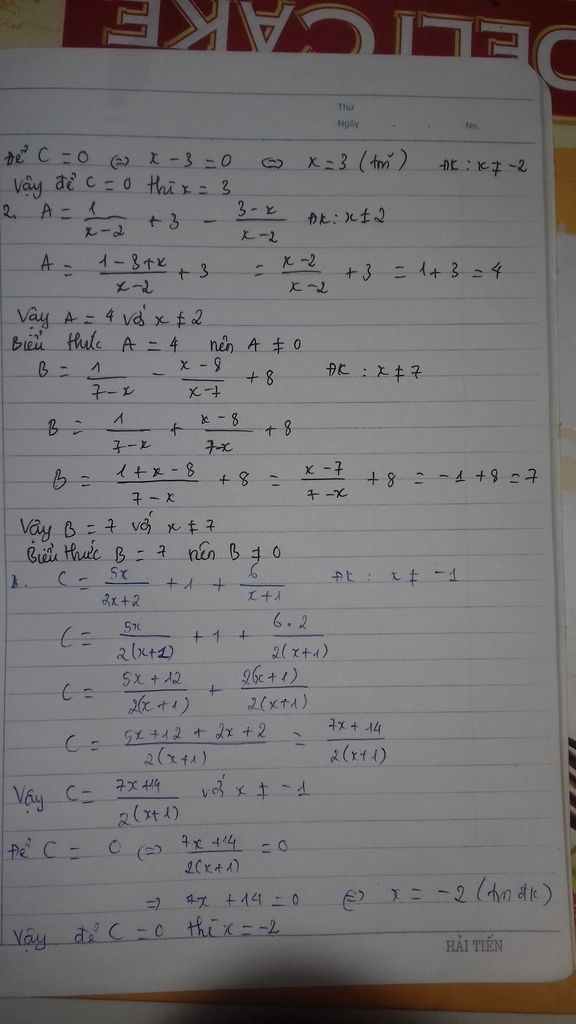 DELI CAKE
Thứ
Ngày . . No.
Để C = 0 ⇔ x - 3 = 0 ⇔ x = 3 (tm) ĐK : x ≠ -2
Vậy để C = 0 thì x = 3
2. A = 1/(x-2) + 3 - (3-x)/(x-2) ĐK : x ≠ 2
A = (1-3+x)/(x-2) + 3 = (x-2)/(x-2) + 3 = 1+3 = 4
Vậy A = 4 với x ≠ 2
Biểu thức A = 4 nên A ≠ 0
B = 1/(7-x) - (x-8)/(x-7) + 8 ĐK : x ≠ 7
B = 1/(7-x) + (x-8)/(7-x) + 8
B = (1+x-8)/(7-x) + 8 = (x-7)/(7-x) + 8 = -1+8 = 7
Vậy B = 7 với x ≠ 7
Biểu thức B = 7 nên B ≠ 0
C = 5x/(2x+2) + 1 + 6/(x+1) ĐK : x ≠ -1
C = 5x/(2(x+1)) + 1 + (6.2)/(2(x+1))
C = (5x+12)/(2(x+1)) + (2(x+1))/(2(x+1))
C = (5x+12+2x+2)/(2(x+1)) = (7x+14)/(2(x+1))
Vậy C = (7x+14)/(2(x+1)) với x ≠ -1
Để C = 0 ⇔ (7x+14)/(2(x+1)) = 0
⇒ 7x + 14 = 0 ⇔ x = -2 (tm đk)
Vậy để C = 0 thì x = -2
HẢI TIẾN